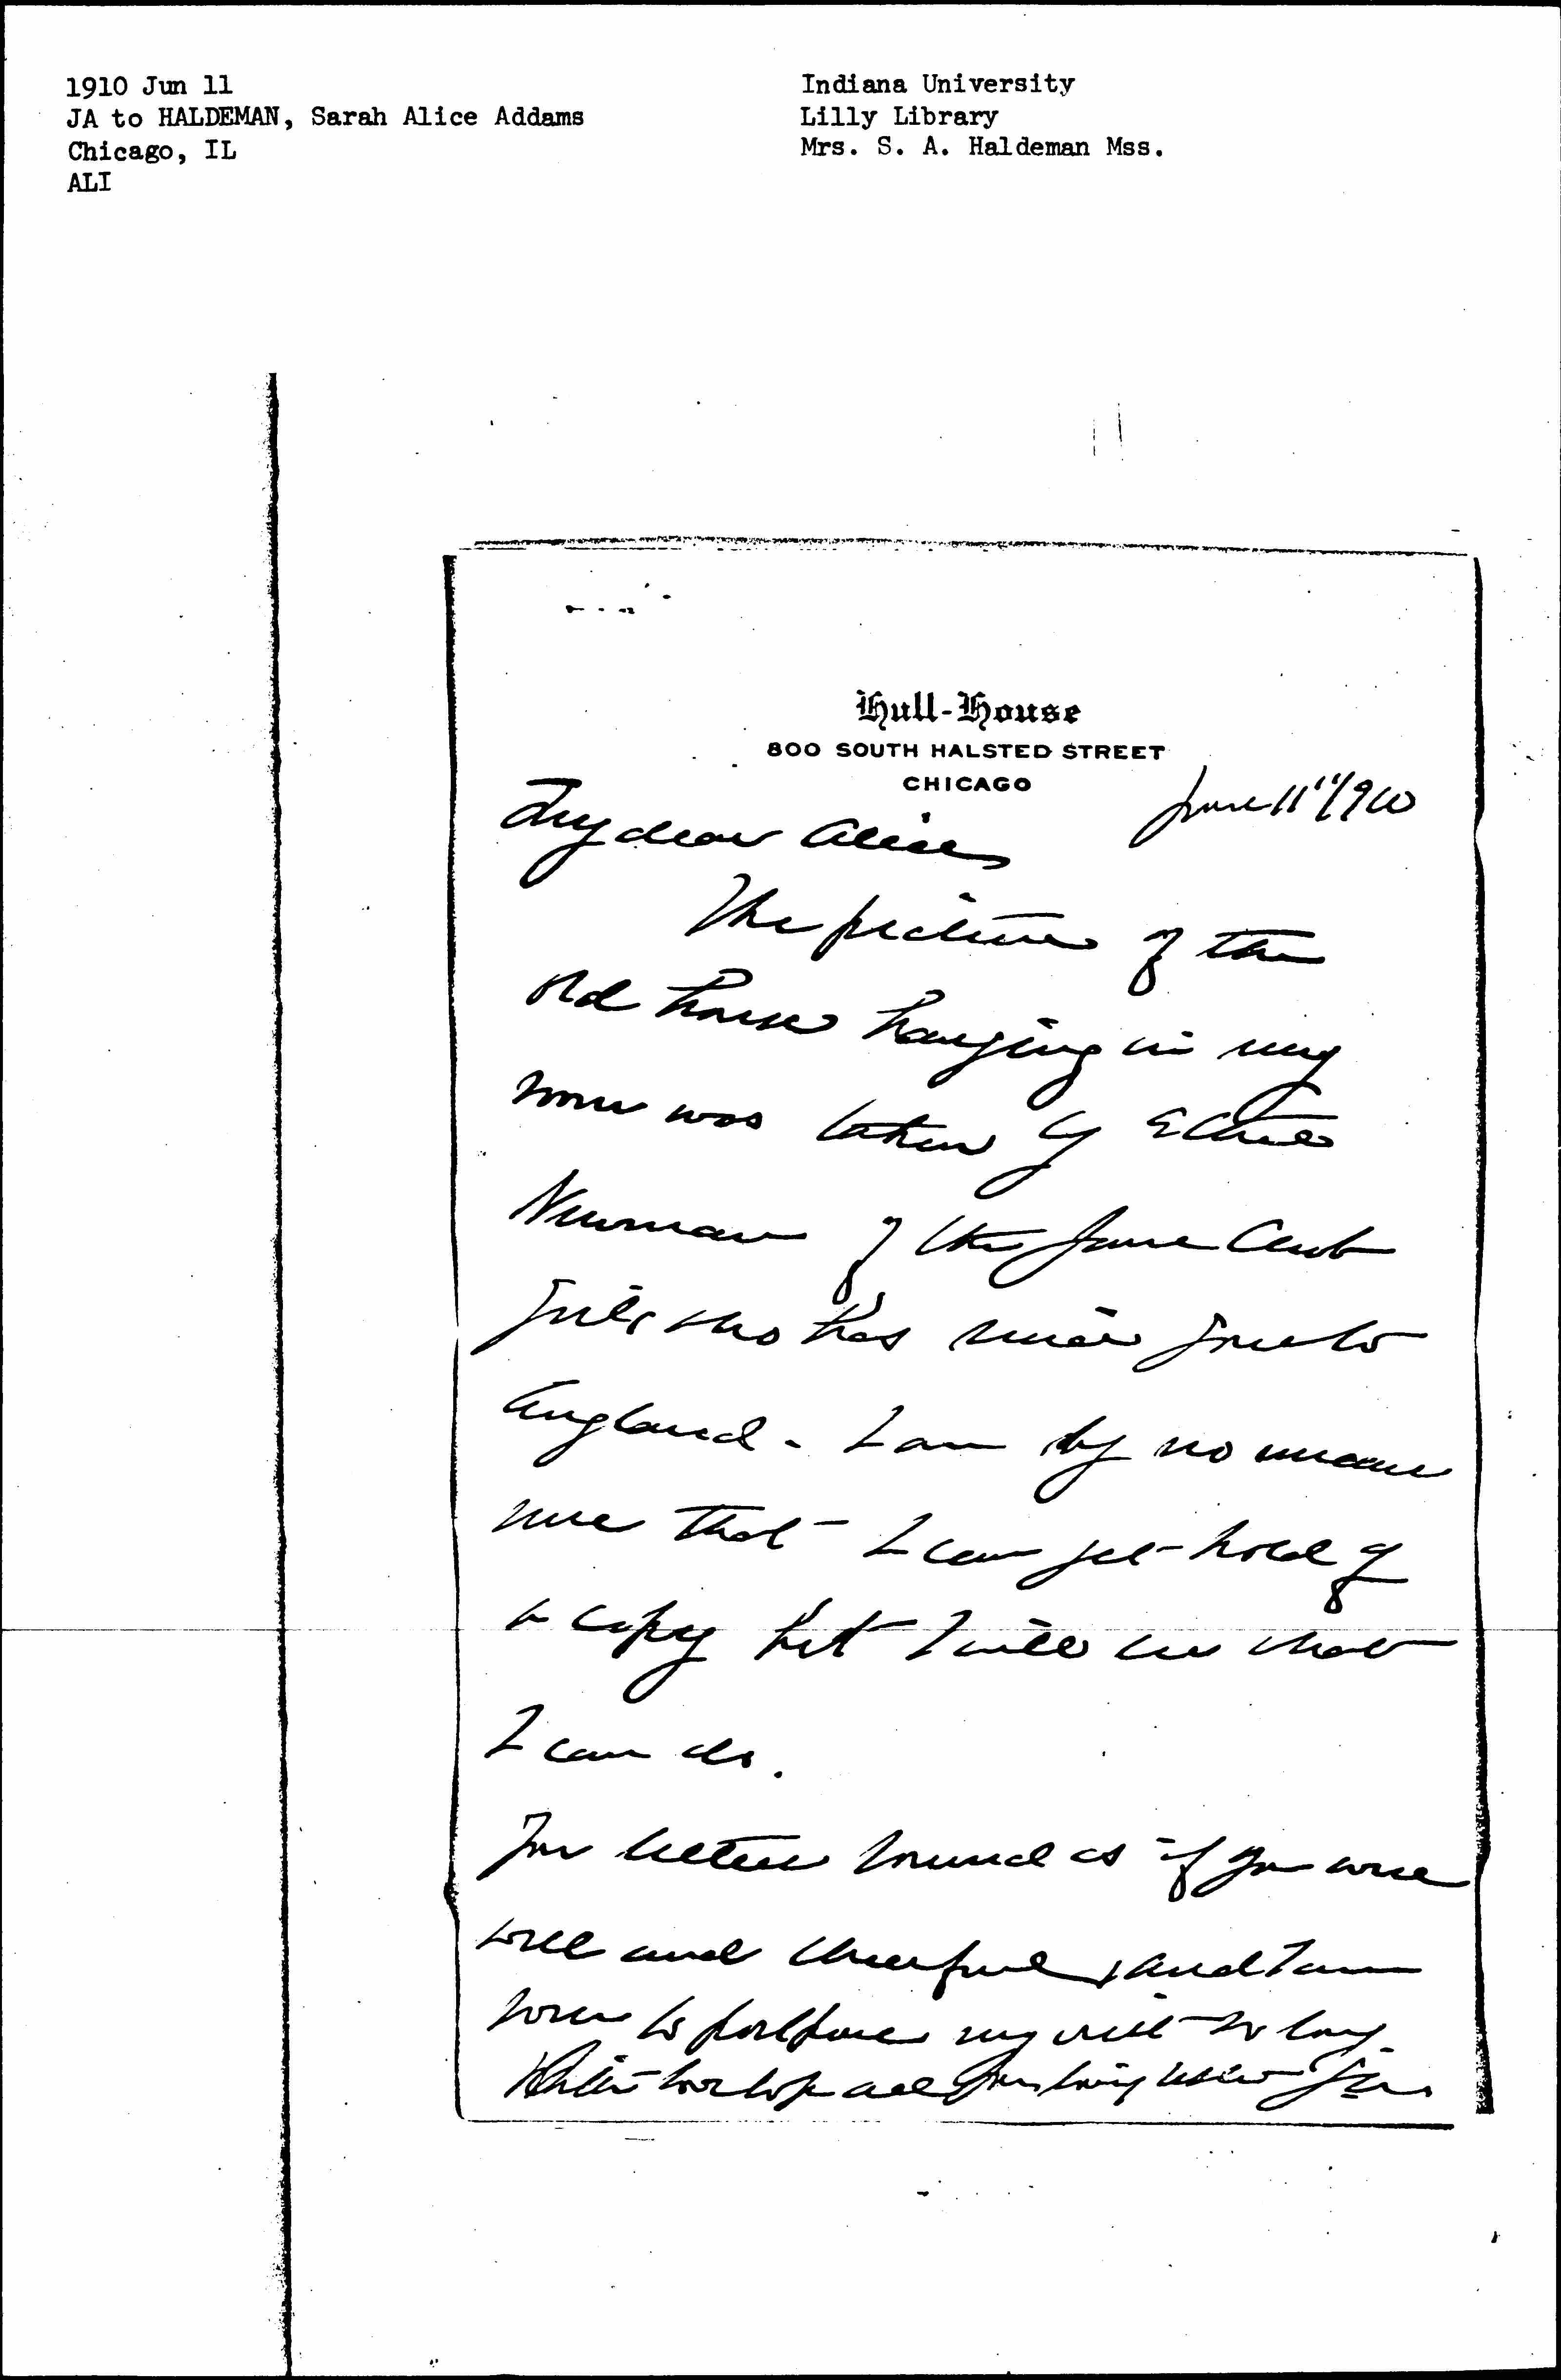 1910 Jun 11
JA to HALDEMAN, Sarah Alice Addams
Chicago, IL
ALI
Indiana University
Lilly Library
Mrs. S. A. Haldeman Mss.
Hull-House
800 SOUTH HALSTED STREET
CHICAGO
June 11" 1910
My dear Alice
The picture of the
old house hanging in my
room was taken by
Newman of the Jane Club
girls who has since gone to
England. I am by no means
sure that I can get hold of
a copy but I will see what
I can do.
Your letter sounds as if you were
well and cheerful, and I am
sorry to postpone my visit so long